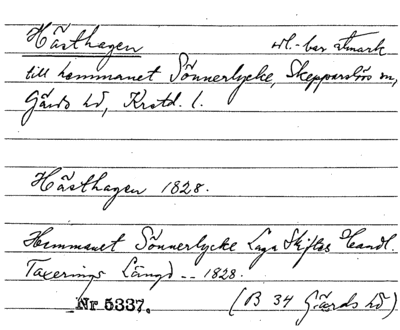 Hästhagen
till hemmanet Sönnerlycke, Skepparslövs sn,
Gärds hd, Krstd. l.
Hästhagen 1828.
Hemmanet Sönnerlycke Laga Skiftes Handl.
Taxerings Längd -- 1828.
Nr 5337. (B 34 Gärds hd)